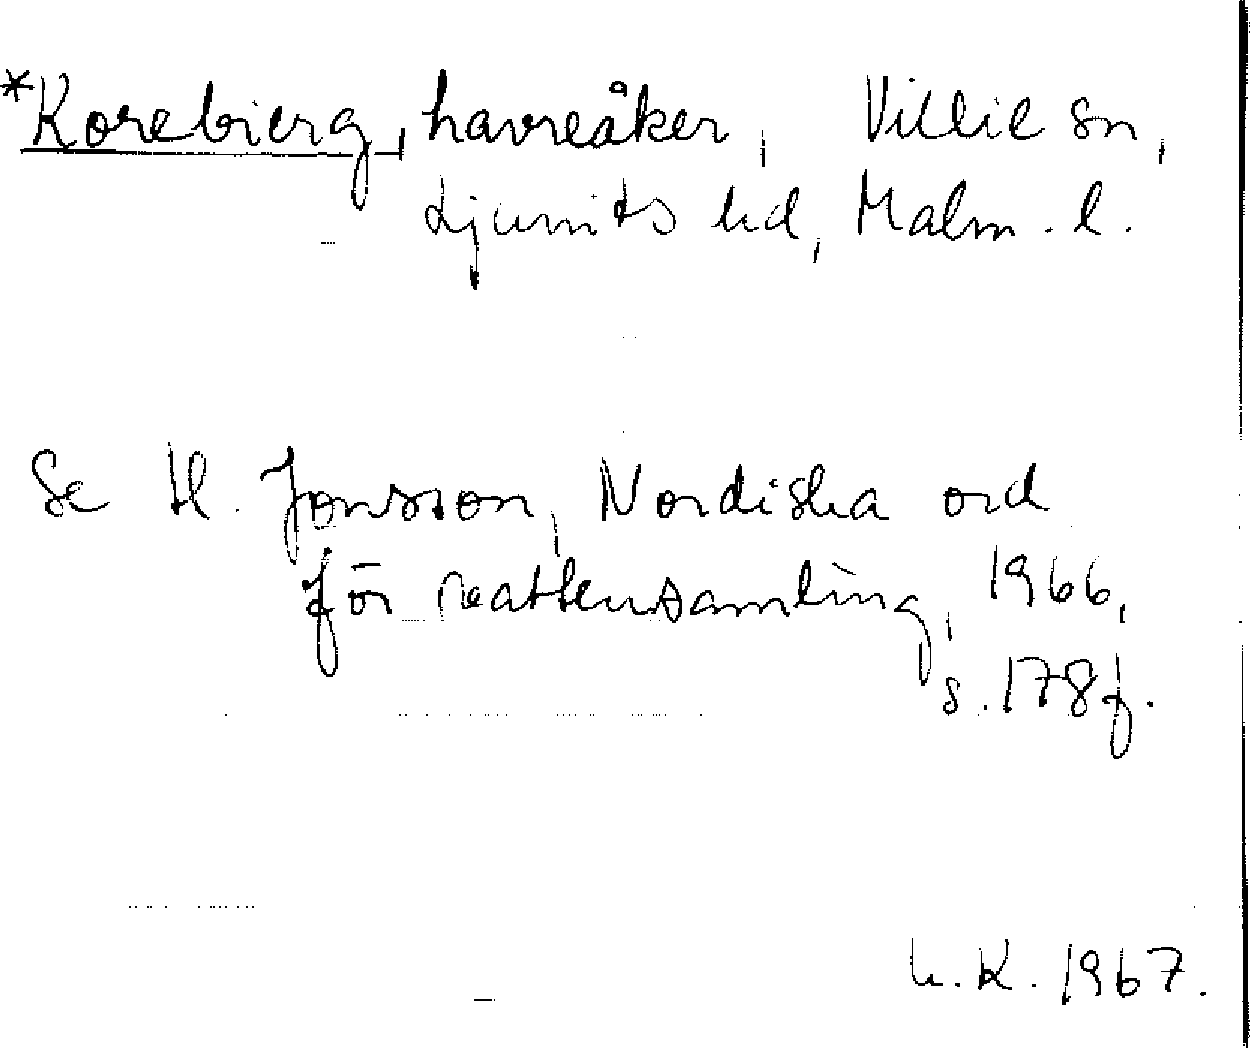 *Korebierg, havreåker, Villie sn,
Ljunits hd, Malm. l.
Se H. Jonsson, Nordiska ord
för vattensamling, 1966,
s. 178 f.
L.K. 1967.